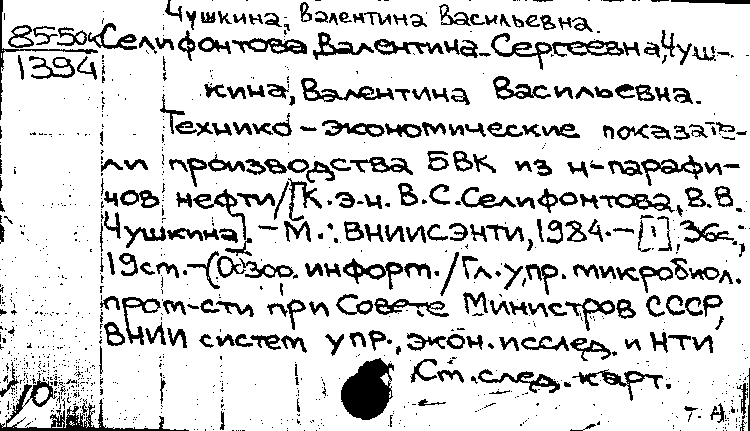 Чушкина, Валентина Васильевна.
85-50к
1394
Селифонтова, Валентина Сергеевна, Чуш-
кина, Валентина Васильевна.
Технико-экономические показате-
ли производства БВК из н-парафи-
нов нефти/[К.э.н. В.С.Селифонтова, В.В.
Чушкина]. - М.: ВНИИСЭНТИ, 1984. - [1], 36с.;
19ст. - (Обзор. информ. / Гл. упр. микробиол.
пром-сти при Совете Министров СССР,
ВНИИ систем упр., экон. исслед. и НТИ
См. след. карт.
10